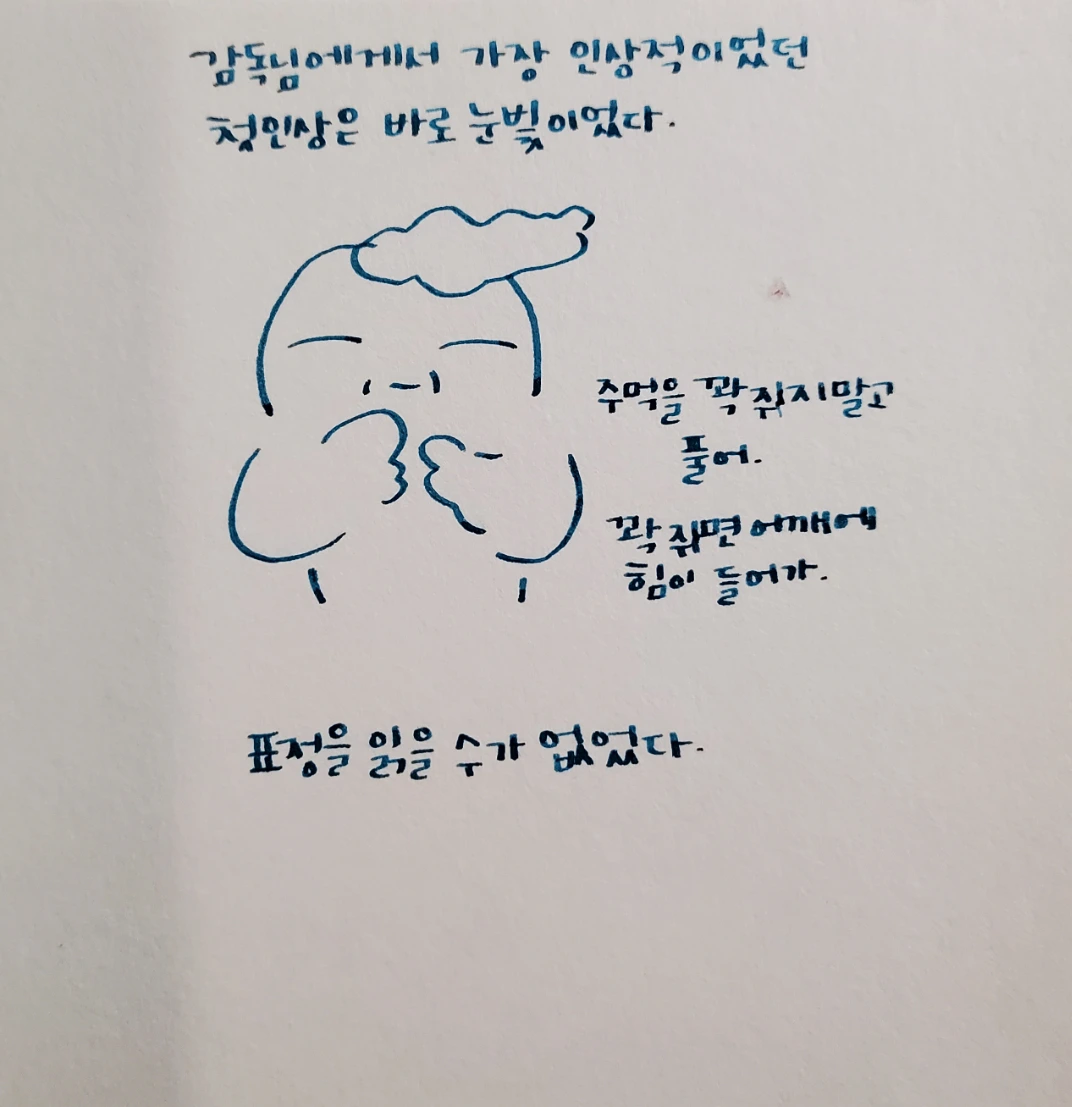 감독님에게서 가장 인상적이었던
첫인상은 바로 눈빛이었다.
주먹을 꽉 쥐지말고
풀어.
꽉 쥐면 어깨에
힘이 들어가.
표정을 읽을 수가 없었다.